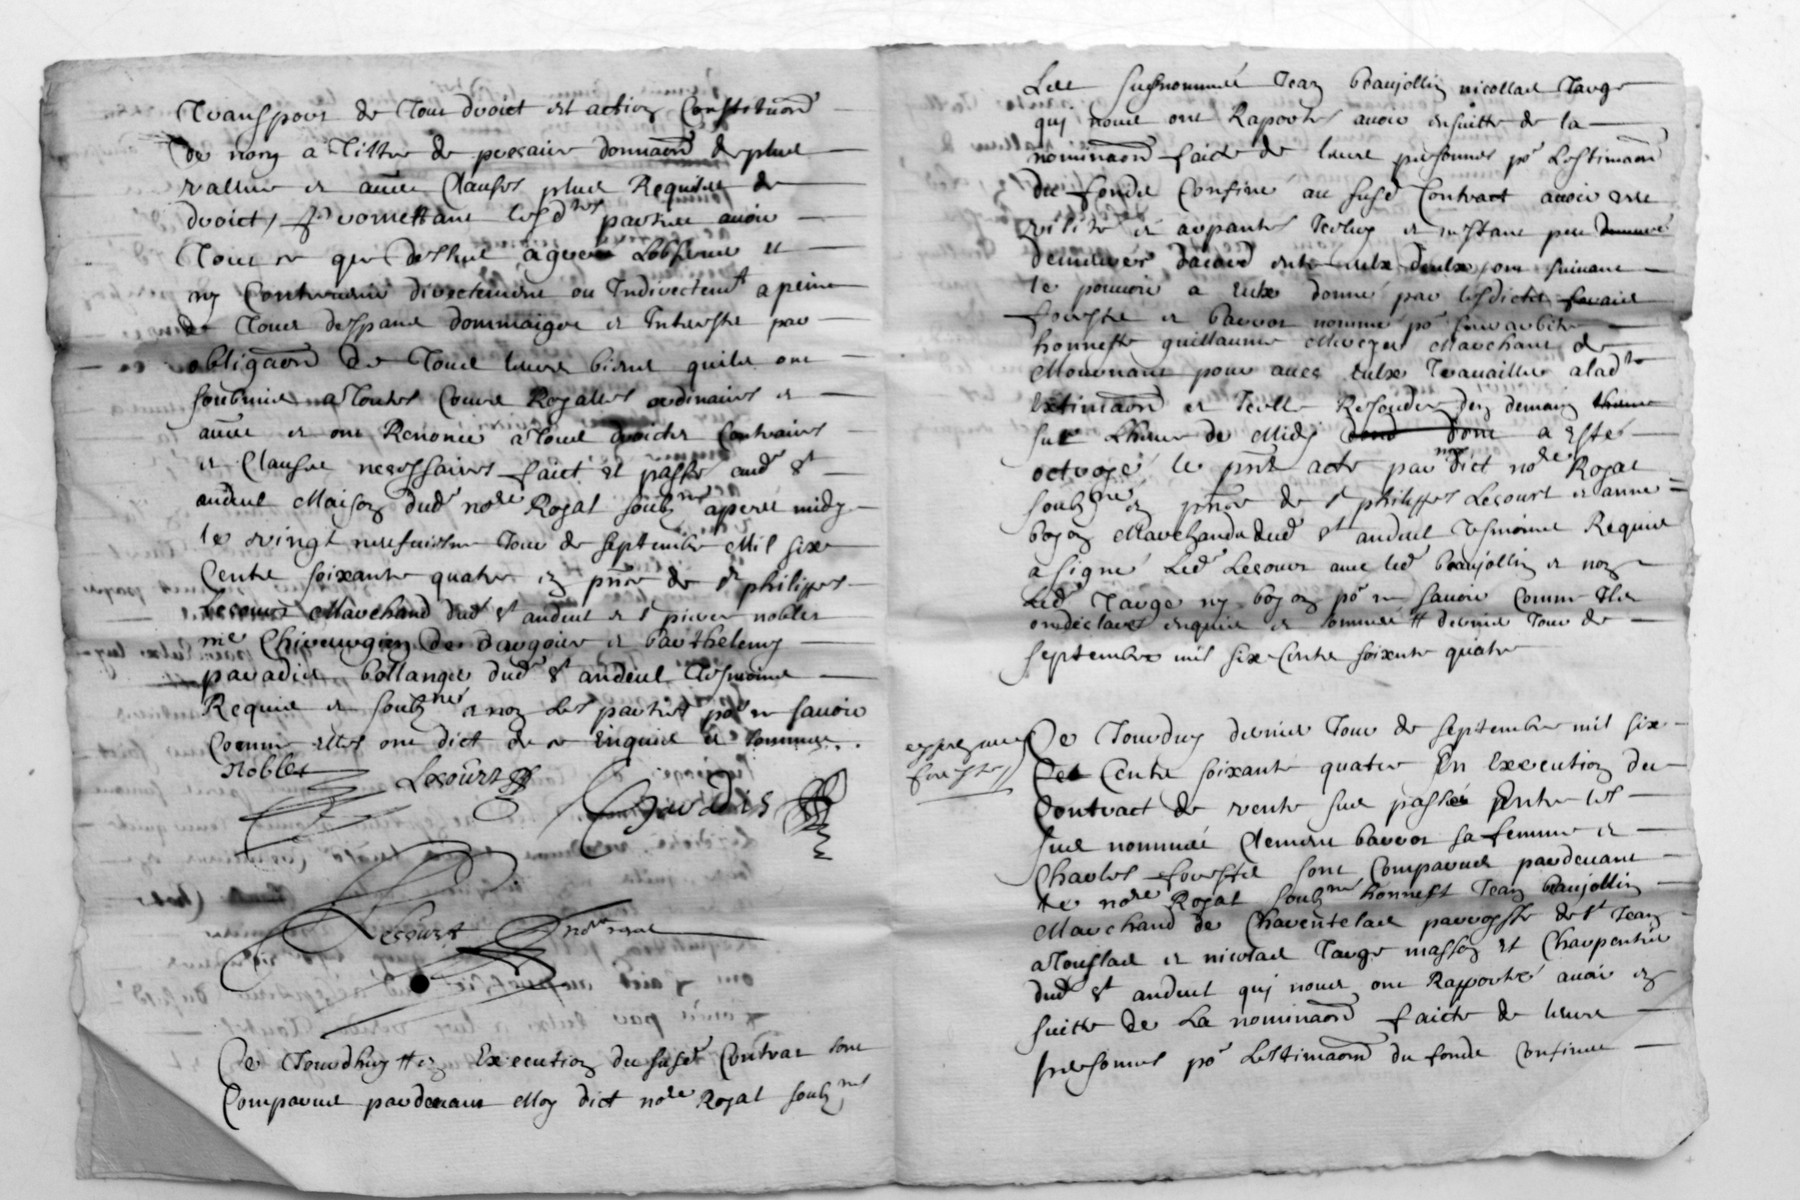 Transport de Tout droict et action Constitution
de nom a Tiltre de precaire donnaon de plus
vallue et autres Clauses plus Requises de
droict, Promettant lesdtes parties avoir
Tout ce que dessus agreer Lobserver et
ny Contrevenir directement ou Indirectemt a peine
de Tous despans dommaiges et Interestz par
obligaon de Tous leurs biens quils ont
soubmis a Toutes Cours Royalles ordinaires et
autres et ont Renoncé a Tous droictz Contraires
et Clauses necessaires faict et passé aud St
andeul Maison dud nore Royal soubzné apres midy
le vingt neufviesme Jour de septembre Mil six
Centz soixante quatre en pnce de sr philippes
Lecourt Marchand dud St andeul et sr pierre nobles
me Chirurgien de dargoire et barthelemy
paradis bollanger dud St andeul Tesmoins
Requis et soubznés et non Les parties por ne sçavoir
Comme elles ont dict de ce Enquis et sommes.
Nobles Lecourt Paradis
Lecourt nore royal
Ce Jourdhuy en Execution du susd Contrat sont
Comparus pardevant Moy dict nore Royal soubzné
Les susnommés Jean beaujollin nicollas Targe
qui nous ont Raporté avoir ensuitte de la
nominaon faicte de leurs personnes por Lestimaon
du fondz Confiné au susd Contract avoir veu
visité et arpanté Icelluy et n'estant peu
demeurés daccord entre eulx deulx ont suivant
le pouvoir a eulx donné par lesdictz
forestz et barror nommé por surarbitre
honneste guillaume Mercyer Marchant de
Mournant pour avec eulx Travailler a ladte
Extimaon et Icelle Resoudre dez demain
sur Lheure de Midy dont a esté
octroyé le pnt acte par moy dict nore Royal
soubzné en pnce de sr philippes Lecourt et anne
boyon Marchandz dud St andeul Tesmoins Requis
a signé Led Lecourt avec led beaujollin et non
Led Targe ny boyon por ne sçavoir Comme Ilz
ont déclairé enquis et sommés dernier Jour de
septembre mil six Centz soixante quatre
expez aud
forestz
Ce Jourduy dernier Jour de septembre mil six
Cet Centz soixante quatre En Execution du
Contract de vente sus passée Entre les
sus nommés Clement barror sa femme et
Charles forestz sont Comparus pardevant
le nore Royal soubzné honnest Jean beaujollin
Marchand de Charentelas parroysse de St Jean
a Touslas et nicolas Targe masson et Charpentier
dud St andeul qui nous ont Rapporté avoir en
suitte de La nominaon faicte de leurs
personnes por Lestimaon du fondz Confiné